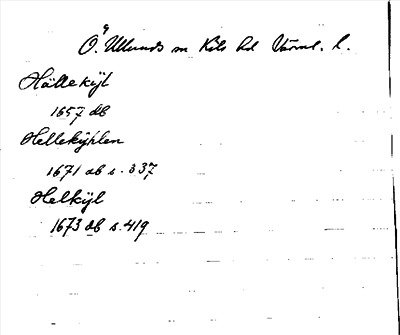 Ö. Ullerud sn Kils hd Värml. l.
Hällekÿl
1657 db
Hellekÿhlen
1671 db s. 337
Helkÿl
1673 db s. 419